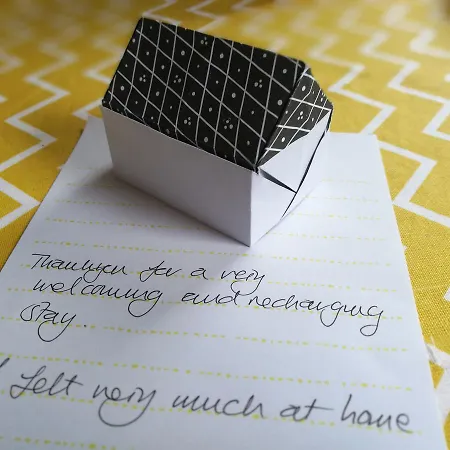 Thankyou for a very
welcoming and recharging
stay.
I felt very much at home